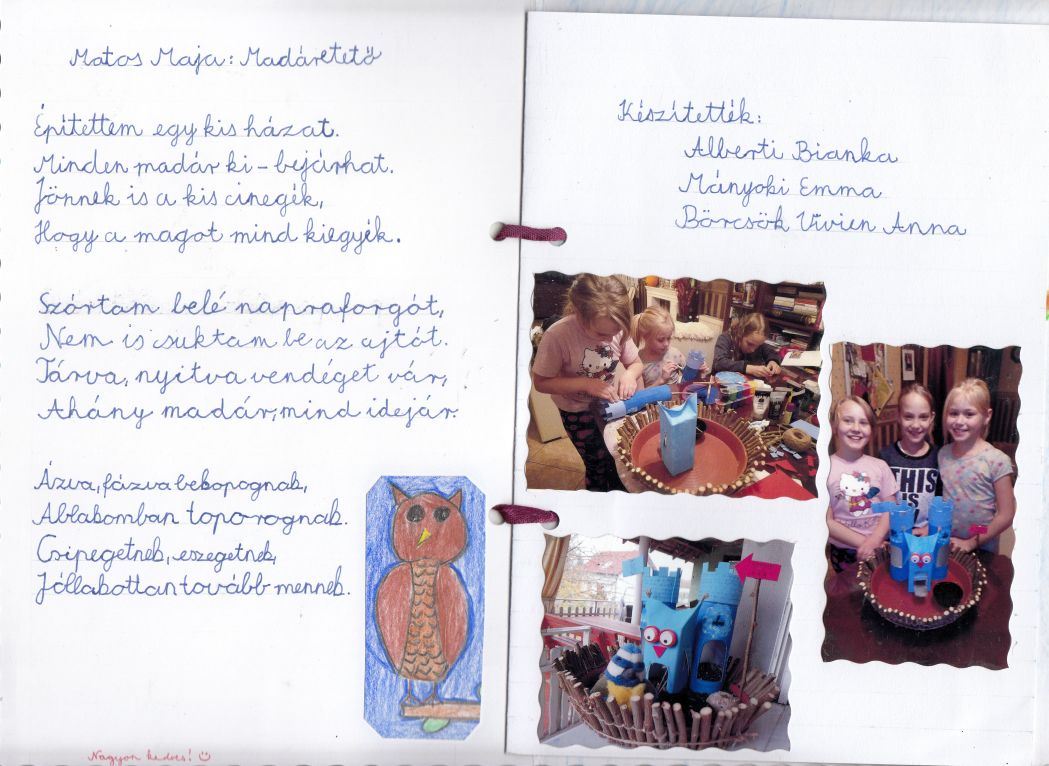 Matos Maja: Madáretető
Építettem egy kis házat.
Minden madár ki-bejárhat.
Jönnek is a kis cinegék,
Hogy a magot mind kiegyék.
Szórtam belé napraforgót,
Nem is csuktam be az ajtót.
Tárva, nyitva vendéget vár,
Ahány madár, mind idejár.
Ázva, fázva bekopognak,
Ablakomban toporognak.
Csipegetnek, eszegetnek,
Jóllakottan tovább mennek.
Nagyon kedves!
Készítették:
Alberti Bianka
Mányoki Emma
Börcsök Vivien Anna
THIS
IS